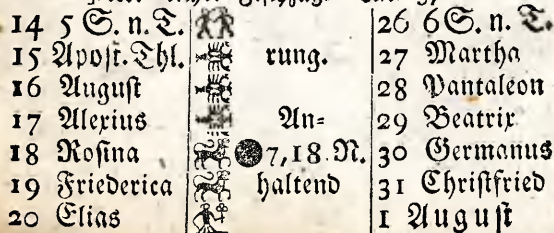 14 5 S. n. T. 26 6 S. n. T.
15 Apost. Thl. rung. 27 Martha
16 August 28 Pantaleon
17 Alexius An= 29 Beatrix
18 Rosina 7,18 N. 30 Germanus
19 Friederica haltend 31 Christfried
20 Elias 1 August